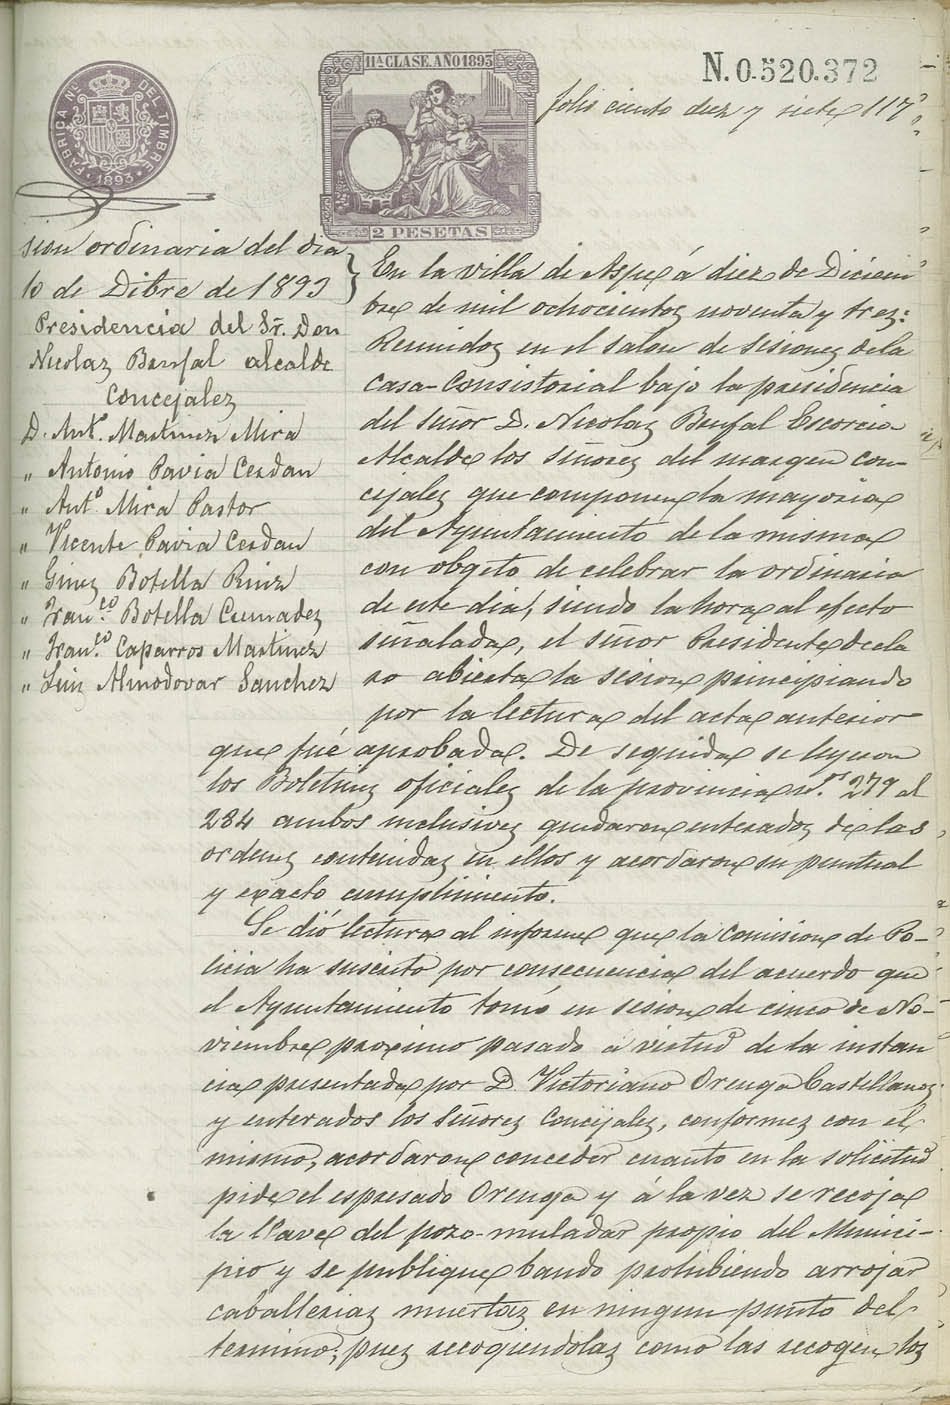 FABRICA Nal DEL TIMBRE
1893
11ª CLASE. AÑO 1893
2 PESETAS
N.0.520.372
folio ciento diez y siete 117
sion ordinaria del dia
10 de Dibre de 1893
Presidencia del Sr. Don
Nicolas Bonfal alcalde
Concejales
D. Antº. Martinez Mira
" Antonio Pavia Cerdan
" Antº Mira Pastor
" Vicente Pavia Cerdan
" Gines Botella Ruiz
" Franco. Botella Cremades
" Franco. Caparros Martinez
" Luis Almodovar Sanchez
En la villa de Aspe á diez de Diciem
bre de mil ochocientos noventa y tres:
Reunidos en el salon de sesiones de la
Casa-Consistorial bajo la presidencia
del señor D. Nicolas Bonfal Escorcia
Alcalde los señores del margen con-
cejales que componen la mayoria
del Ayuntamiento de la misma
con obgeto de celebrar la ordinaria
de este dia, siendo la hora al efecto
señalada, el señor Presidente decla
ro abierta la sesion principiando
por la lectura del acta anterior
que fué aprobada. De seguida se leyeron
los Boletines oficiales de la provincia nos. 279 al
284 ambos inclusives quedaron enterados de las
ordenes contenidas en ellos y acordaron su puntual
y exacto cumplimiento.
Se dió lectura al informe que la Comision de Po-
licia ha suscrito por consecuencia del acuerdo que
el Ayuntamiento tomó en sesion de cinco de No-
viembre proximo pasado á virtud de la instan
cia presentada por D. Victoriano Orenga Castellanos
y enterados los señores Concejales, conformes con el
mismo, acordaron conceder cuanto en la solicitud
pide el espresado Orenga y á la vez se recoja
la llave del pozo-muladar propio del Munici-
pio y se publique bando prohibiendo arrojar
caballerias muertas en ningun punto del
termino; pues recogiendolas como las recogen los